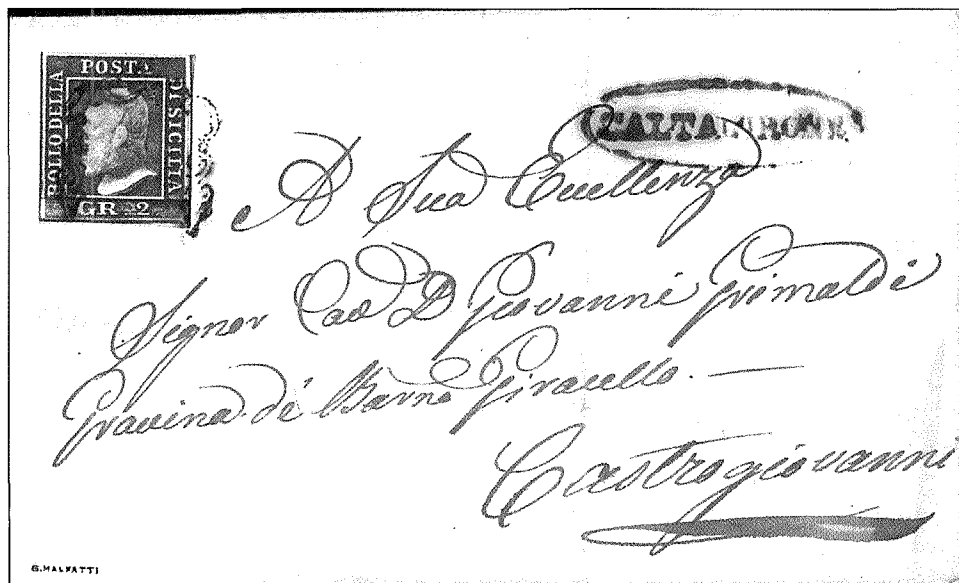 POSTA
BOLLO DELLA
DI SICILIA
GR 2
CALTAGIRONE
A Sua Eccellenza
Signor Cav D Giovanni Grimaldi
Gravina de
Castrogiovanni
G.MALFATTI